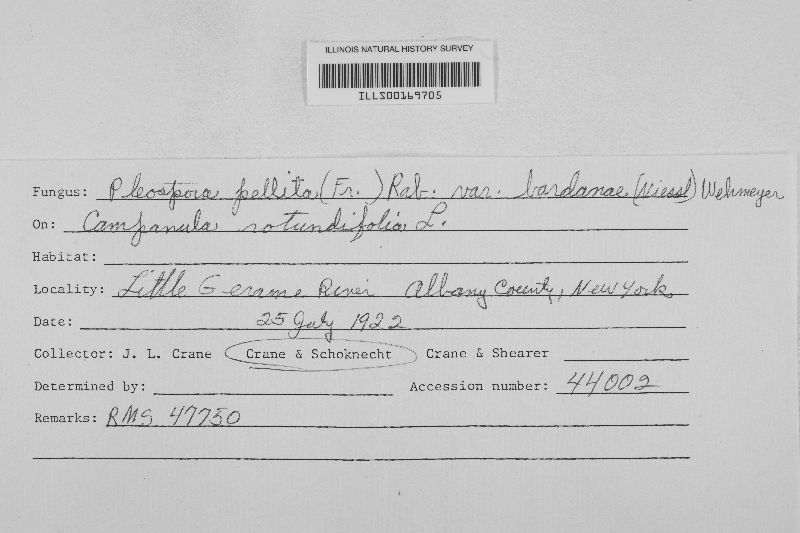 ILLINOIS NATURAL HISTORY SURVEY
ILLS00169705
Fungus: Pleospora pellita (Fr.) Rab. var. bardanae (Niessl) Wehmeyer
On: Campanula rotundifolia L.
Habitat:
Locality: Little Gerame River Albany County, New York
Date: 25 July 1922
Collector: J. L. Crane Crane & Schoknecht Crane & Shearer
Determined by: Accession number: 44002
Remarks: RMS 47750